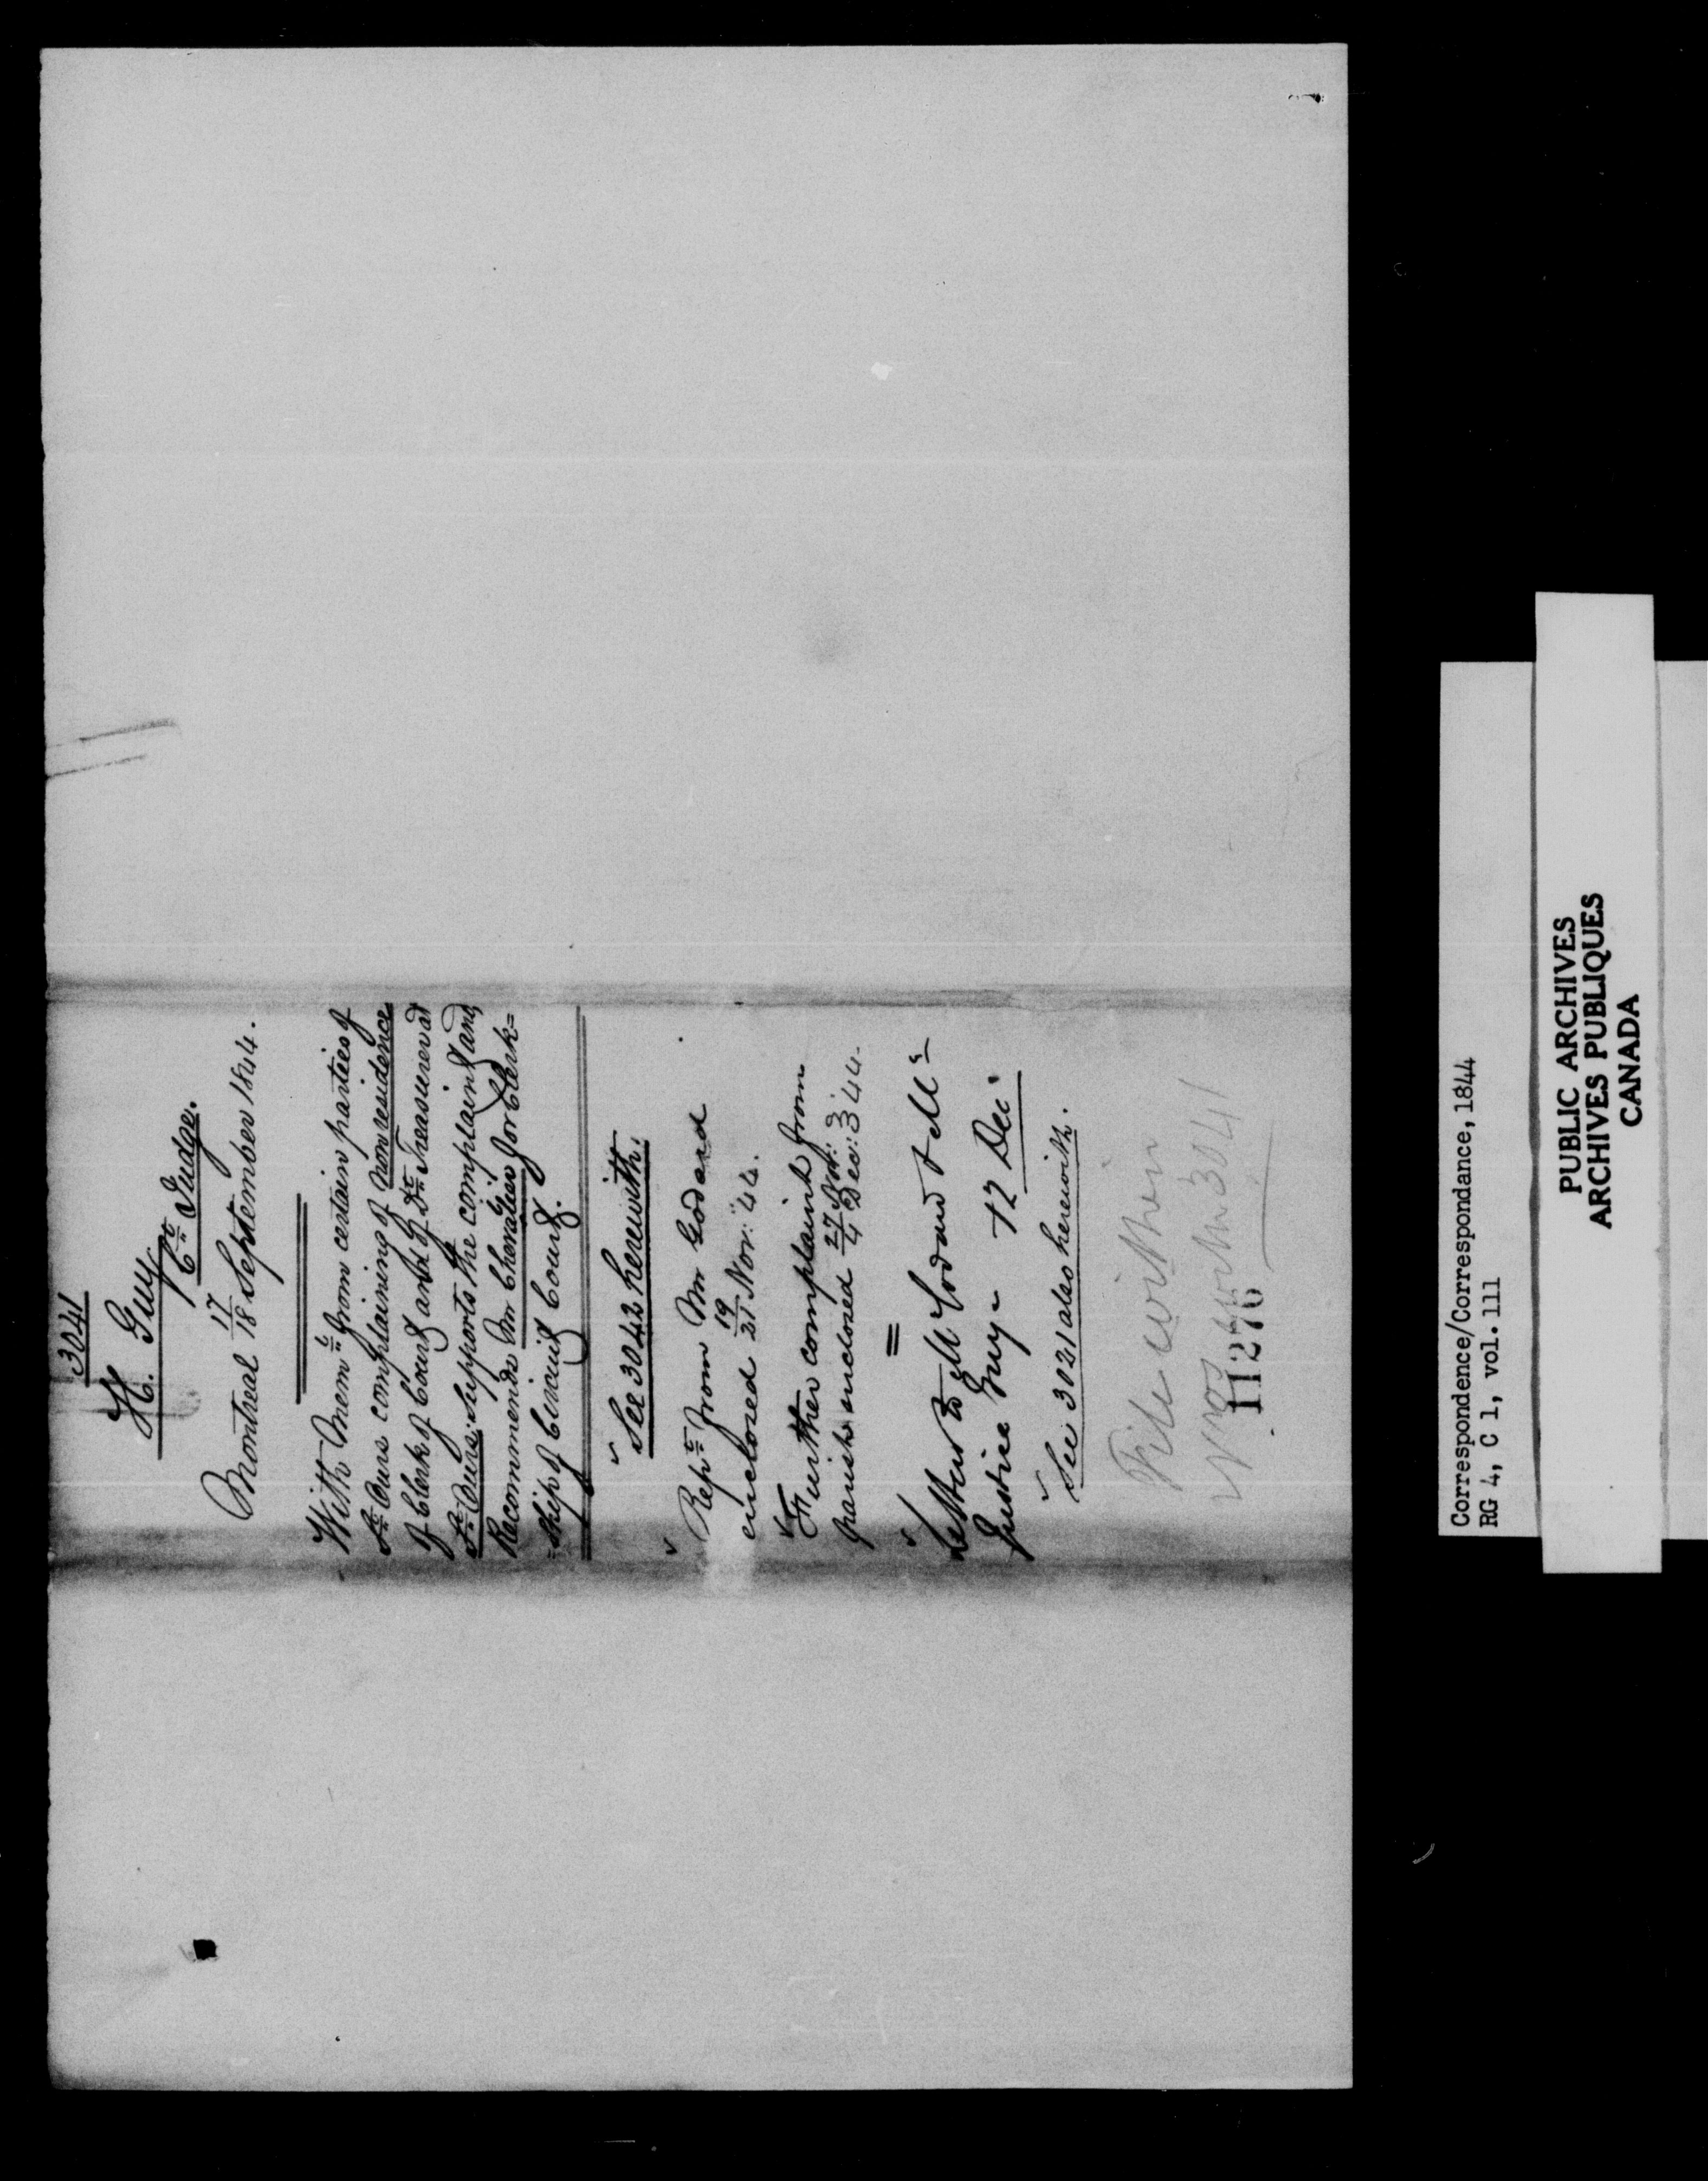 3041
H. Guy
Ct. Judge.
Montreal 17/18 September 1844.
With Memls. from certain parties of
St. Ours complaining of non residence
of Clerk of Court and of Dt. Treasurer at
St. Ours: supports the complaint, and
Recommends Mr Chevalier for Clerk=
=ship of Circuit Court.
See 3042 herewith.
Rept. from Mr Godard
enclosed 19/21 Nov: 44.
Further complaint from
parish enclosed 27 Nov: 3./4 Dec: 3 44.
Letters to M Godard & Mr
Justice Guy - 12 Dec.
See 3021 also herewith.
File within
3041
11276
Correspondence/Correspondance, 1844
RG 4, C 1, vol. 111
PUBLIC ARCHIVES
ARCHIVES PUBLIQUES
CANADA